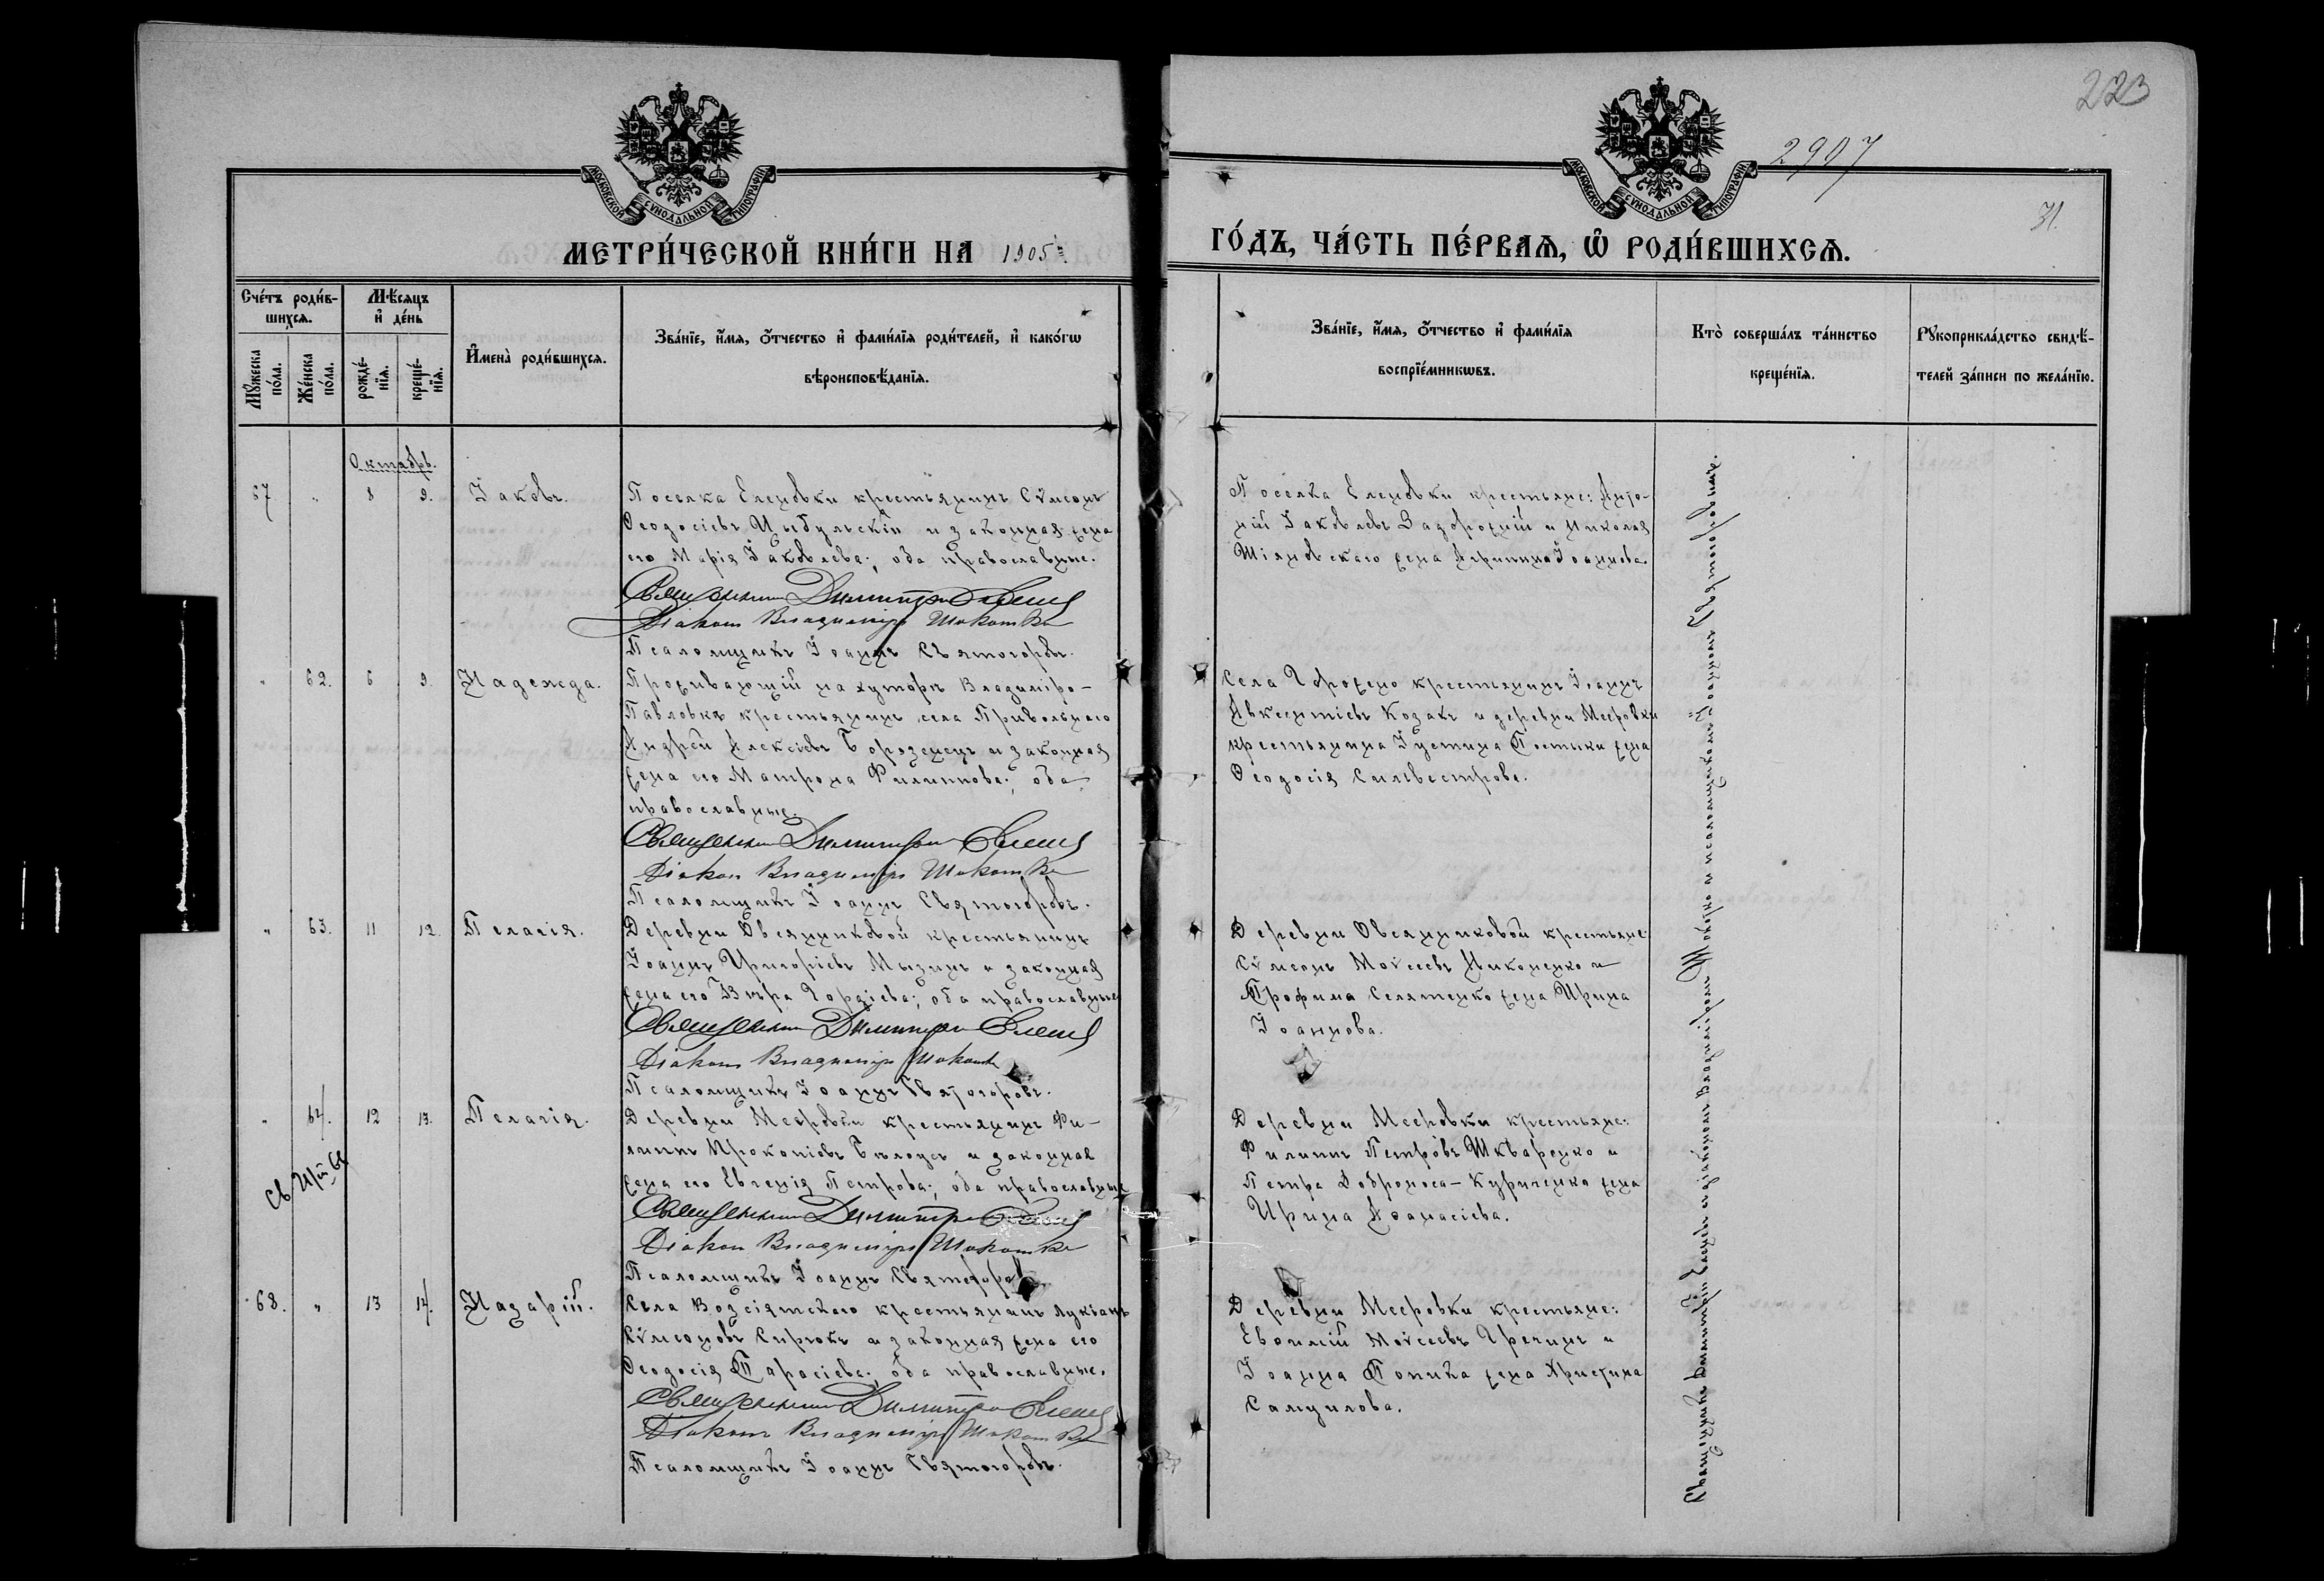 223
2907
31.
МОСКОВСКОЙ СѴНОДАЛЬНОЙ ТИПОГРАФІИ
МОСКОВСКОЙ СѴНОДАЛЬНОЙ ТИПОГРАФІИ
МЕТРИ́ЧЕСКОЙ КНИ́ГИ НА 1905й
ГО́ДЪ, ЧА́СТЬ ПЕ́РВАѦ, Ѿ РОДИ́ВШИХСѦ.
Сче́тъ роди́в-
шихсѧ.
Мꙋ́жеска по́ла.
Же́нска по́ла.
Мѣ́сѧцъ
и҆ де́нь
рожде́-
нїѧ.
креще́-
нїѧ.
И҆мена̀ роди́вшихсѧ.
Зва́нїе, и҆́мѧ, ѻ҆́тчество и҆ фами́лїѧ роди́телей, и҆ како́гѡ
вѣроисповѣ́данїѧ.
Зва́нїе, и҆́мѧ, ѻ҆́тчество и҆ фами́лїѧ
воспрїе́мникѡвъ.
Кто̀ соверша́лъ та́инство
креще́нїѧ.
Рꙋкоприкла́дство свидѣ́-
телей за́писи по жела́нїю.
Октябрь.
67 " 8 9. Іаковъ.
Поселка Еленовки крестьянинъ Сѵмеонъ
Ѳеодосіевъ Цыбульскій и законная жена
его Марія Іаковлева; оба православные.
Священникъ Димитрій
Діаконъ Владиміръ Шокотко
Псаломщикъ Іоаннъ Святогоровъ.
Поселка Еленовки крестьяне: Анто-
ній Іаковлевъ Задорожній и Николая
Шіяновскаго жена Агрипина Іоаннова.
" 62. 6 9. Надежда.
Проживающій на хуторѣ Владиміро-
Павловкѣ крестьянинъ села Привольнаго
Андрей Алексіевъ Бороденецъ и законная
жена его Матрона Филиппова; оба
православные.
Священникъ Димитрій
Діаконъ Владиміръ Шокотко
Псаломщикъ Іоаннъ Святогоровъ.
Села Горожено крестьянинъ Іоаннъ
Авксентіевъ Козакъ и деревни Мееровки
крестьянина Іустина жена
Ѳеодосія Сильвестрова.
" 63. 11 12. Пелагія.
Деревни Овсянниковой крестьянинъ
Іоаннъ Григоріевъ Мызинъ и законная
жена его Вѣра Гордіева; оба православные
Священникъ Димитрій
Діаконъ Владиміръ Шокотко
Псаломщикъ Іоаннъ Святогоровъ.
Деревни Овсянниковой крестьяне:
Сѵмеонъ Моѵсеевъ Никоненко и
Трофима Селятенко жена Ирина
Іоаннова.
" 64. 12 13. Пелагія.
Деревни Мееровки крестьянинъ Фи-
липпъ Прокопіевъ Бѣлоусъ и законная
жена его Евгенія Петрова; оба православные
Священникъ Димитрій
Діаконъ Владиміръ Шокотко
Псаломщикъ Іоаннъ Святогоровъ
Деревни Мееровки крестьяне:
Филиппъ Петровъ Шкваренко и
Петра Доброноса-Куриченко жена
Ирина Аѳанасіева.
68. " 13 14. Назарій.
Села Возсіятскаго крестьянинъ Лукіанъ
Сѵмеоновъ Сирюкъ и законная жена его
Ѳеодосія Тарасіева; оба православные.
Священникъ Димитрій
Діаконъ Владиміръ Шокотко
Псаломщикъ Іоаннъ Святогоровъ.
Деревни Мееровки крестьяне:
Евѳимій Моѵсеевъ Гречинъ и
Іоанна Топиха жена Христина
Самуилова.
Священникъ Димитрій съ діакономъ Владиміромъ Шокотко и псаломщикомъ Іоанномъ Святогоровымъ.